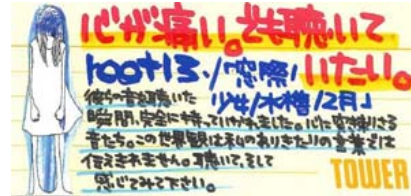 心が痛い。でも聴いて
rootm/窓際/いたい。
少年/水槽/2月」
彼らの音を聴いた
瞬間、完全に持っていかれました。心に突き刺さる
音たち。この世界観は私のありきたりの言葉では
伝えきれません。聴いて、そして
感じてみて下さい。
TOWER